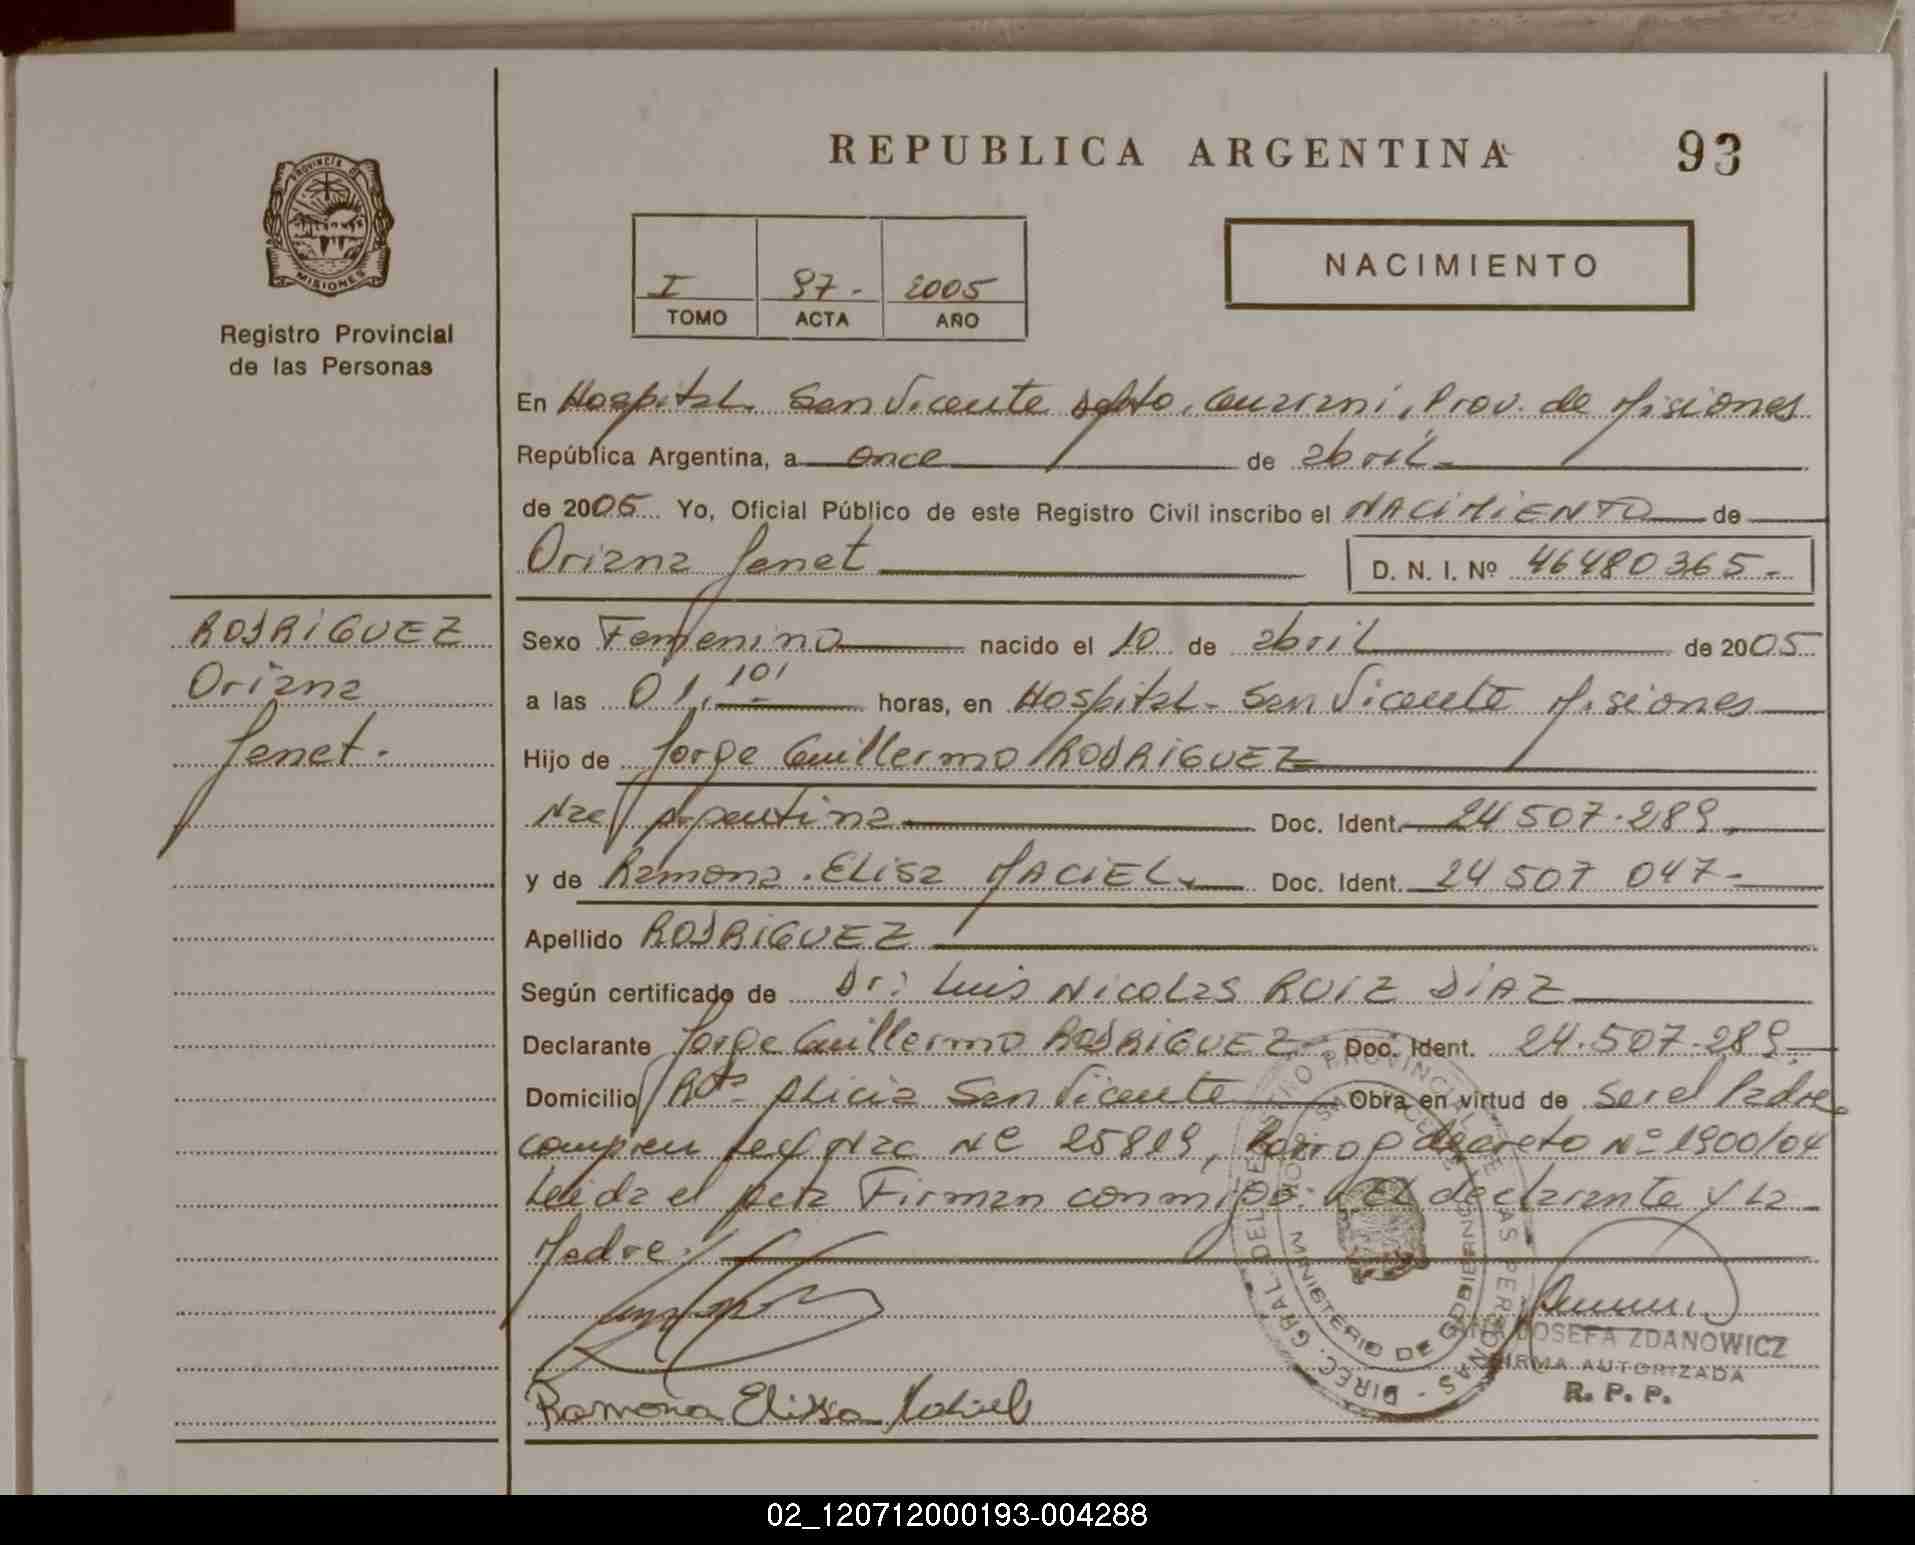 REPUBLICA ARGENTINA 93
PROVINCIA DE
MISIONES
Registro Provincial
de las Personas
I 97- 2005
TOMO ACTA AÑO
NACIMIENTO
En Hospital San Vicente Dpto. Guarani, Prov. de Misiones
República Argentina, a once de abril
de 2005 Yo, Oficial Público de este Registro Civil inscribo el NACIMIENTO de
Oriana Jenet D. N. I. Nº 46480365-
RODRIGUEZ
Oriana
Jenet.
Sexo Femenino nacido el 10 de abril de 2005
a las 01,10' horas, en Hospital- San Vicente Misiones
Hijo de Jorge Guillermo RODRIGUEZ
Nac Argentina Doc. Ident. 24507.289
y de Ramona Elisa MACIEL Doc. Ident. 24507 047-
Apellido RODRIGUEZ
Según certificado de Dr: Luis Nicolas RUIZ DIAZ
Declarante Jorge Guillermo RODRIGUEZ Doc. Ident. 24.507.289
Domicilio Alicia San Vicente Obra en virtud de ser el Padre
Nac Nº 25819, decreto Nº 1900/04
Leida el Acta Firman conmigo: El declarante y La
Madre.
Ramona Elissa Maciel
DIREC. GRAL. DEL REGISTRO PROVINCIAL DE LAS PERSONAS
MINISTERIO DE GOBIERNO
ANA JOSEFA ZDANOWICZ
FIRMA AUTORIZADA
R. P. P.
02_120712000193-004288